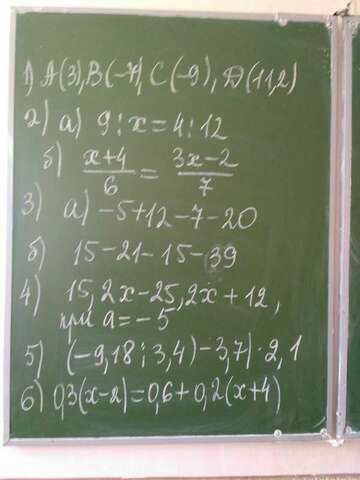 1) A(3), B(-7), C(-9), D(11,2)
2) а) 9 : x = 4 : 12
б) x+4/6 = 3x-2/7
3) а) -5+12-7-20
б) 15-21-15-39
4) 15,2x-25,2x+12,
при а=-5
5) (-9,18 : 3,4)-3,7)·2,1
6) 0,3(x-2)=0,6+0,2(x+4)